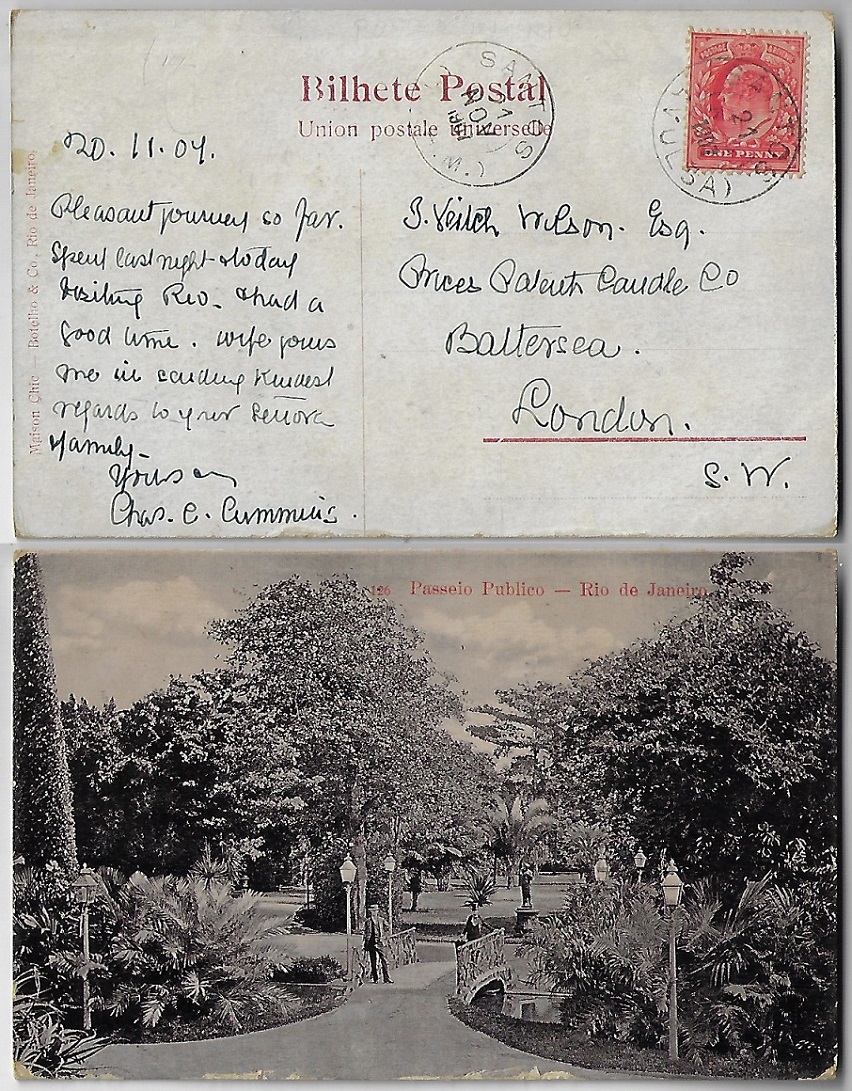 Bilhete Postal
Union postale universelle
SANTOS
21
NOV
ONE PENNY
20. 11. 09.
Pleasant journey so far.
Spent last night & today
visiting Rio. & had a
good time. Wife joins
me in sending kindest
regards to your Señora
& family –
Yours
Chas. C. Cummins.
J. Veitch Wilson. Esq.
Prices Patent Candle Co
Battersea.
London.
S. W.
Maison Chic — Botelho & Co, Rio de Janeiro.
126 Passeio Publico — Rio de Janeiro